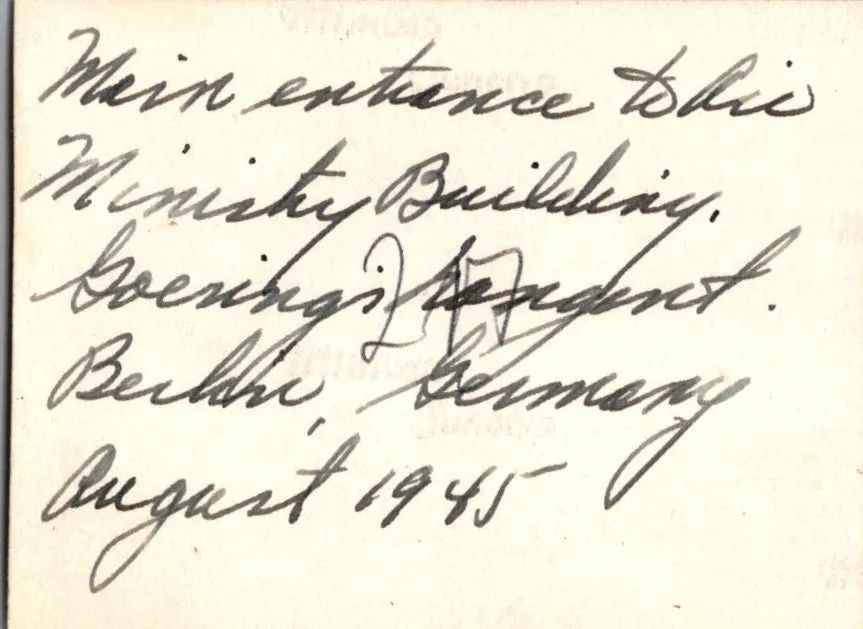 Main entrance to Air
Ministry Building.
Goerings hangout.
Berlin, Germany
August 1945